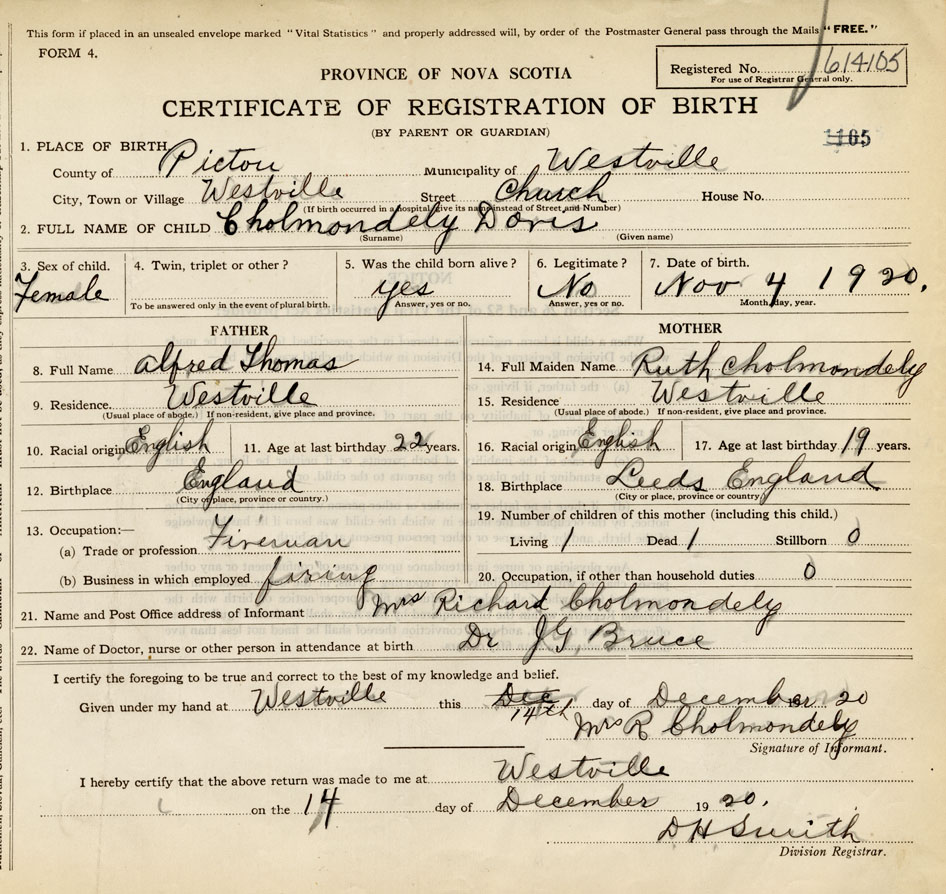 This form if placed in an unsealed envelope marked "Vital Statistics" and properly addressed will, by order of the Postmaster General pass through the Mails "FREE."
FORM 4.
Registered No. 614105
For use of Registrar General only.
PROVINCE OF NOVA SCOTIA
CERTIFICATE OF REGISTRATION OF BIRTH
(BY PARENT OR GUARDIAN)
1165
1. PLACE OF BIRTH
County of Pictou Municipality of Westville
City, Town or Village Westville Street Church House No.
(If birth occurred in a hospital give its name instead of Street and Number)
2. FULL NAME OF CHILD Cholmondely Doris
(Surname) (Given name)
3. Sex of child. 4. Twin, triplet or other? 5. Was the child born alive? 6. Legitimate? 7. Date of birth.
Female yes No Nov 4 1920.
To be answered only in the event of plural birth. Answer, yes or no. Answer, yes or no. Month, day, year.
FATHER MOTHER
8. Full Name Alfred Thomas 14. Full Maiden Name Ruth Cholmondely
9. Residence. Westville 15. Residence Westville
(Usual place of abode.) If non-resident, give place and province. (Usual place of abode.) If non-resident, give place and province.
10. Racial origin English 11. Age at last birthday 22 years. 16. Racial origin English 17. Age at last birthday 19 years.
12. Birthplace England 18. Birthplace Leeds England
(City or place, province or country.) (City or place, province or country)
13. Occupation:— 19. Number of children of this mother (including this child.)
(a) Trade or profession Fireman Living 1 Dead 1 Stillborn 0
(b) Business in which employed firing 20. Occupation, if other than household duties 0
21. Name and Post Office address of Informant Mrs Richard Cholmondely
22. Name of Doctor, nurse or other person in attendance at birth Dr J G, Bruce
I certify the foregoing to be true and correct to the best of my knowledge and belief.
Given under my hand at Westville this Dec 14th day of December 1920
Mrs R Cholmondely
Signature of Informant.
I hereby certify that the above return was made to me at Westville
on the 14 day of December 1920.
D H Smith
Division Registrar.